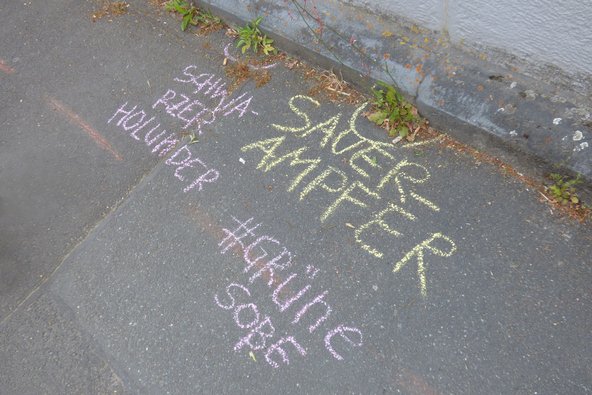 SCHWA-
RZER
HOLUNDER
SAUER-
AMPFER
#GRÜNE
SOßE